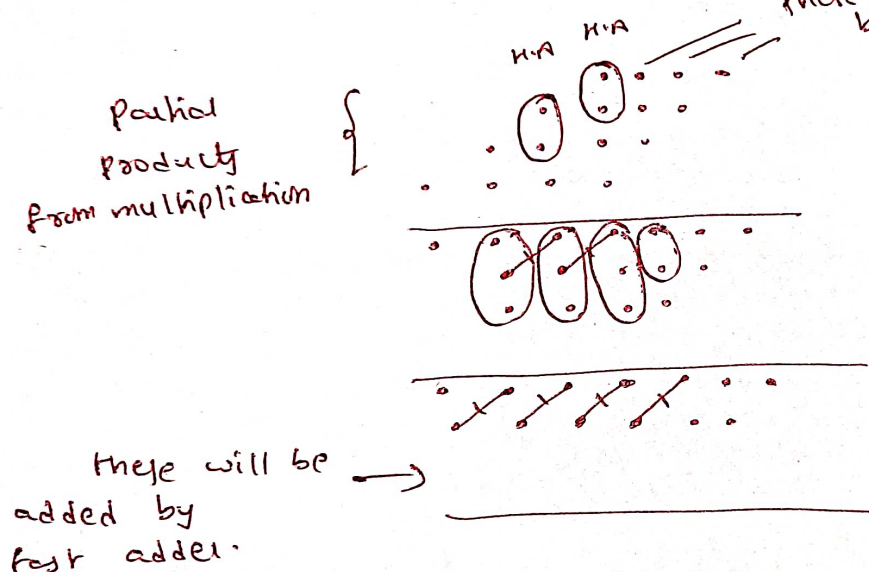 H.A H.A
Partial
products
from multiplication
these will be
added by
fast adder.